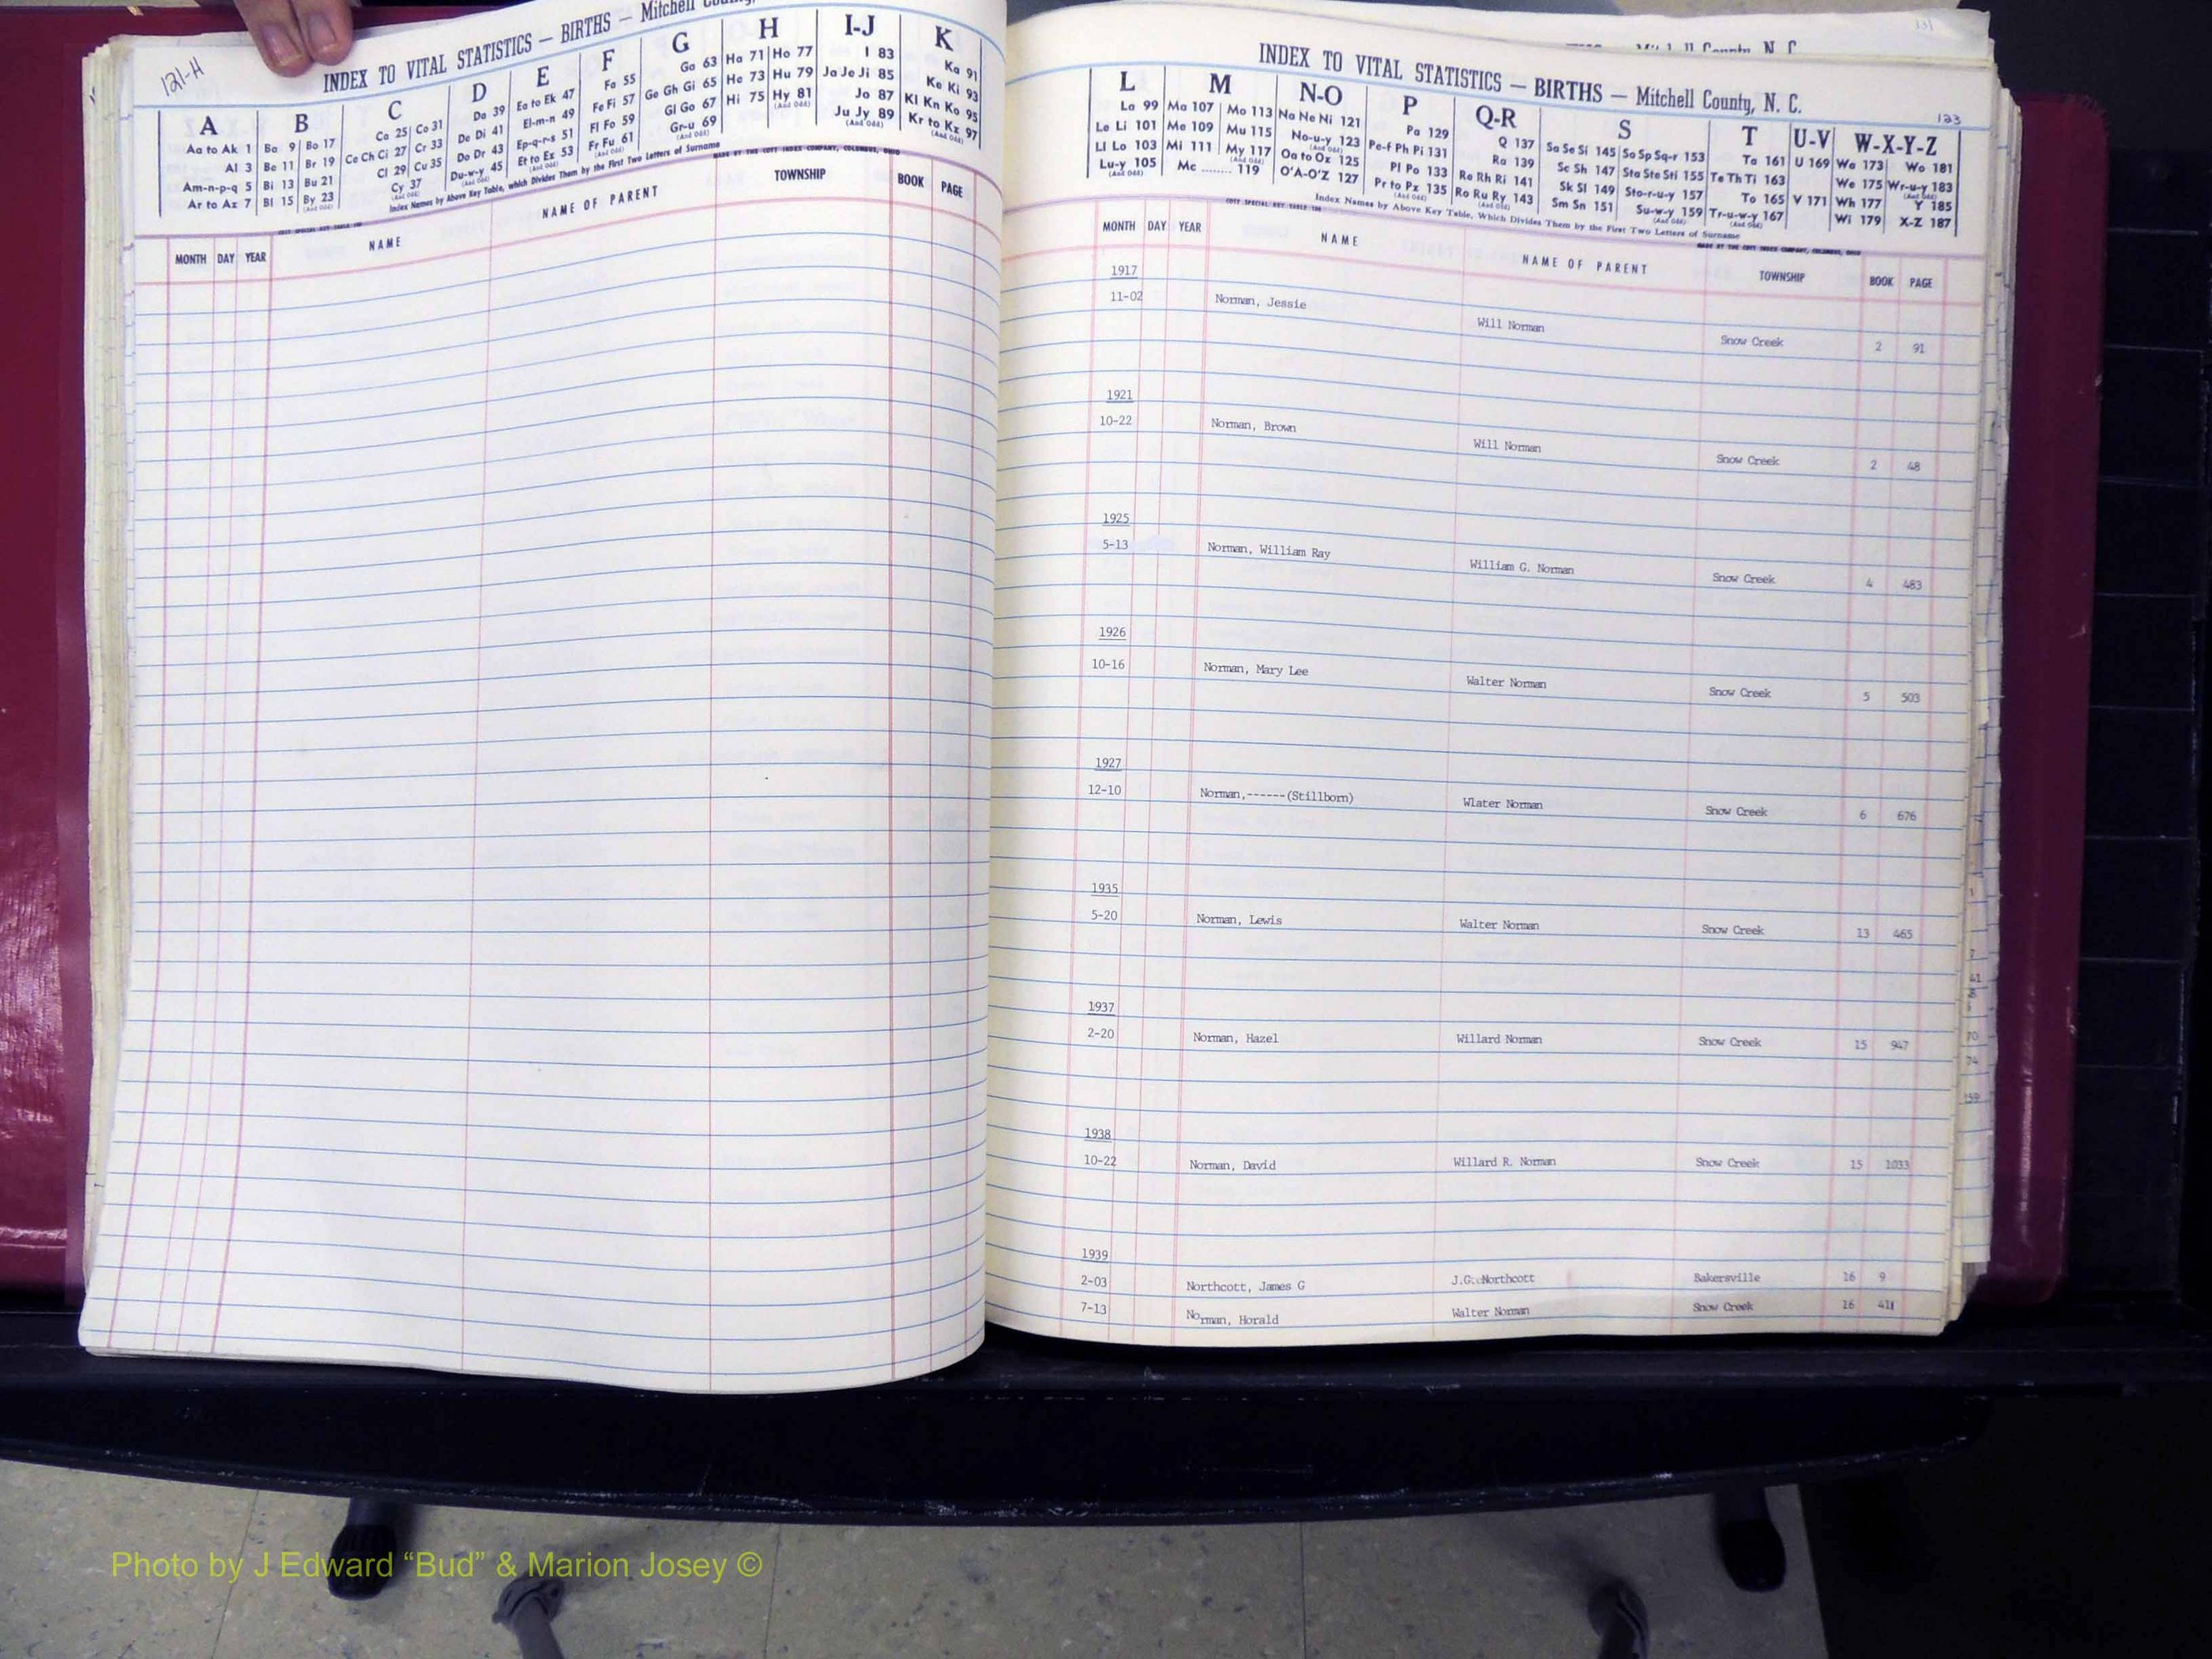 121-H
INDEX TO VITAL STATISTICS — BIRTHS — Mitchell
A B C D E F G H I-J K
Aa to Ak 1
Al 3
Am-n-p-q 5
Ar to Az 7
Ba 9 Bo 17
Be 11 Br 19
Bi 13 Bu 21
Bl 15 By 23
(And Odd)
Ca 25 Co 31
Ce Ch Ci 27 Cr 33
Cl 29 Cu 35
Cy 37
(And Odd)
Da 39
De Di 41
Do Dr 43
Du-w-y 45
(And Odd)
Ea to Ek 47
El-m-n 49
Ep-q-r-s 51
Et to Ez 53
(And Odd)
Fa 55
Fe Fi 57
Fl Fo 59
Fr Fu 61
(And Odd)
Ga 63
Ge Gh Gi 65
Gl Go 67
Gr-u 69
(And Odd)
Ha 71 Ho 77
He 73 Hu 79
Hi 75 Hy 81
(And Odd)
I 83
Ja Je Ji 85
Jo 87
Ju Jy 89
(And Odd)
Ka 91
Ke Ki 93
Kl Kn Ko 95
Kr to Kz 97
(And Odd)
COTT SPECIAL KEY TABLE
Index Names by Above Key Table, which Divides Them by the First Two Letters of Surname
MADE BY THE COTT INDEX COMPANY, COLUMBUS, OHIO
MONTH DAY YEAR NAME NAME OF PARENT TOWNSHIP BOOK PAGE
131
Mitchell County, N. C.
INDEX TO VITAL STATISTICS — BIRTHS — Mitchell County, N. C.
123
L M N-O P Q-R S T U-V W-X-Y-Z
La 99
Le Li 101
Ll Lo 103
Lu-y 105
(And Odd)
Ma 107 Mo 113
Me 109 Mu 115
Mi 111 My 117
(And Odd)
Mc ........ 119
Na Ne Ni 121
No-u-y 123
(And Odd)
Oa to Oz 125
O'A-O'Z 127
Pa 129
Pe-f Ph Pi 131
Pl Po 133
Pr to Pz 135
(And Odd)
Q 137
Ra 139
Re Rh Ri 141
Ro Ru Ry 143
(And Odd)
Sa Se Si 145 So Sp Sq-r 153
Sc Sh 147 Sta Ste Sti 155
Sk Sl 149 Sto-r-u-y 157
Sm Sn 151 Su-w-y 159
(And Odd)
Ta 161
Te Th Ti 163
To 165
Tr-u-w-y 167
(And Odd)
U 169
V 171
Wa 173 Wo 181
We 175 Wr-u-y 183
(And Odd)
Wh 177 Y 185
Wi 179 X-Z 187
COTT SPECIAL KEY TABLE
Index Names by Above Key Table, Which Divides Them by the First Two Letters of Surname
MADE BY THE COTT INDEX COMPANY, COLUMBUS, OHIO
MONTH DAY YEAR NAME NAME OF PARENT TOWNSHIP BOOK PAGE
1917
11-02 Norman, Jessie Will Norman Snow Creek 2 91
1921
10-22 Norman, Brown Will Norman Snow Creek 2 48
1925
5-13 Norman, William Ray William G. Norman Snow Creek 4 483
1926
10-16 Norman, Mary Lee Walter Norman Snow Creek 5 503
1927
12-10 Norman,------(Stillborn) Wlater Norman Snow Creek 6 676
1935
5-20 Norman, Lewis Walter Norman Snow Creek 13 465
1937
2-20 Norman, Hazel Willard Norman Snow Creek 15 947
1938
10-22 Norman, David Willard R. Norman Snow Creek 15 1033
1939
2-03 Northcott, James G J.G. Northcott Bakersville 16 9
7-13 Norman, Horald Walter Norman Snow Creek 16 411
Photo by J Edward “Bud” & Marion Josey ©